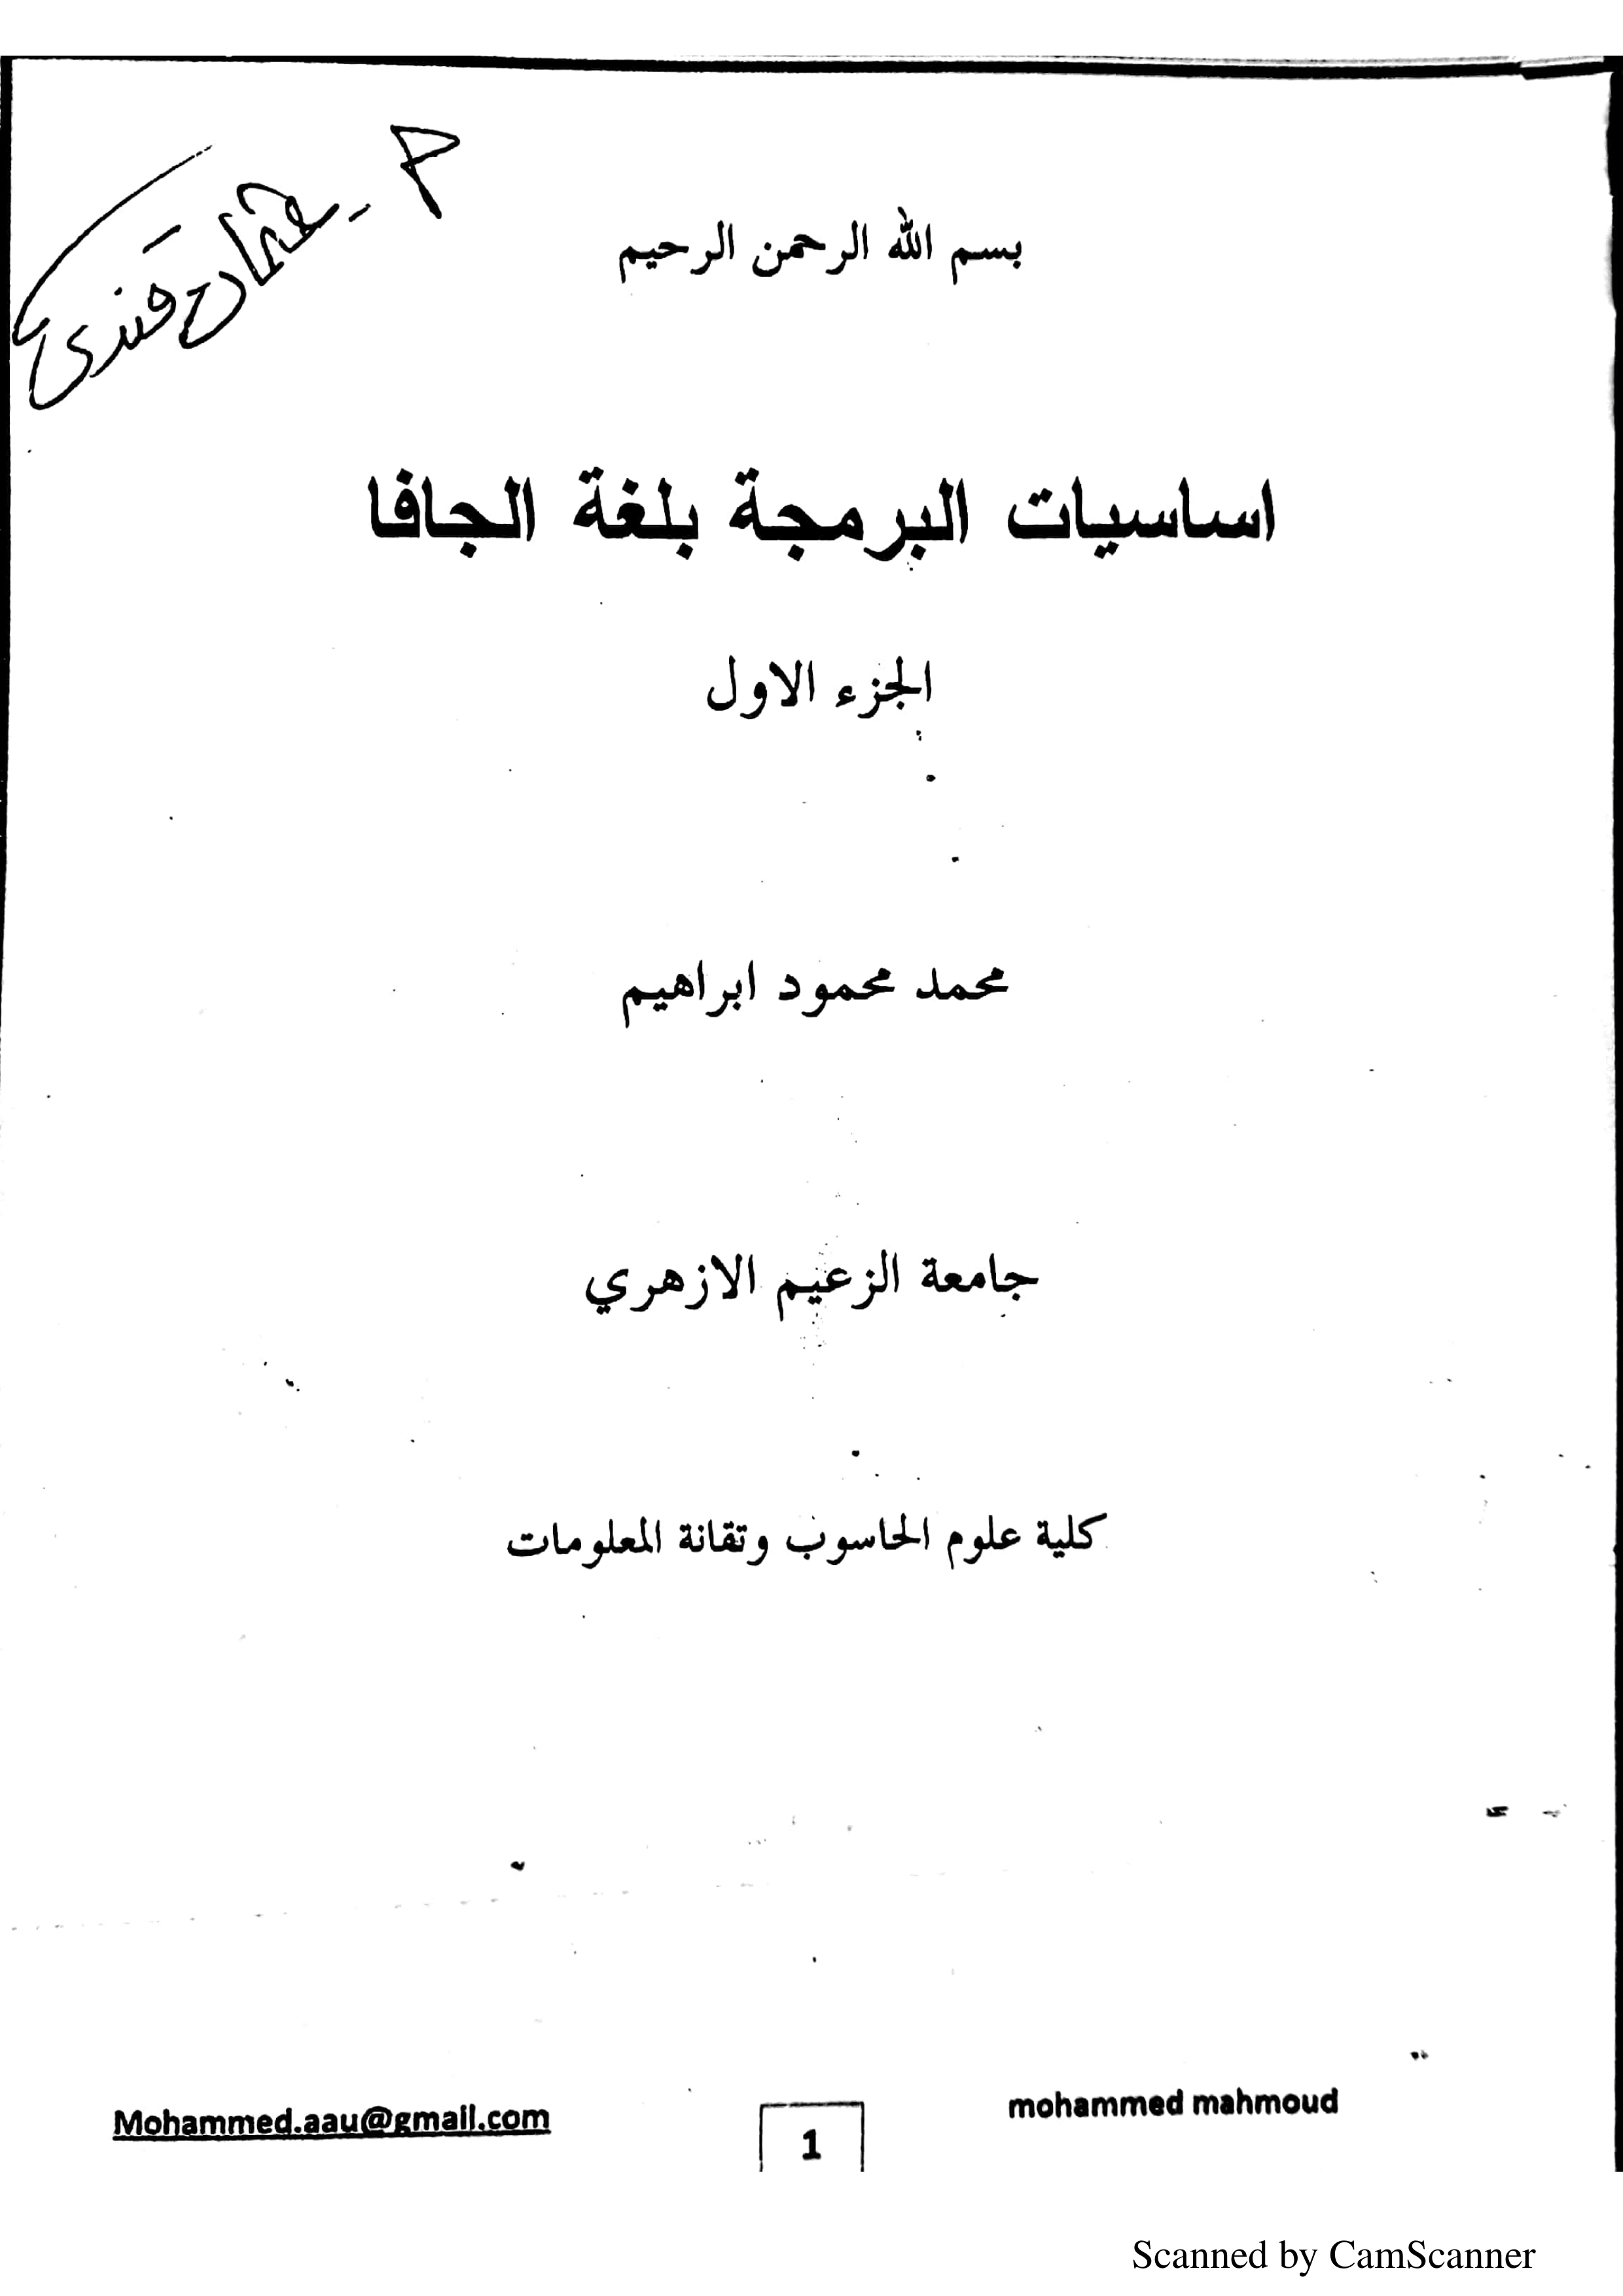 بسم الله الرحمن الرحيم
اساسيات البرمجة بلغة الجافا
الجزء الاول
محمد محمود ابراهيم
جامعة الزعيم الازهري
كلية علوم الحاسوب وتقانة المعلومات
mohammed mahmoud
1
Mohammed.aau@gmail.com
Scanned by CamScanner